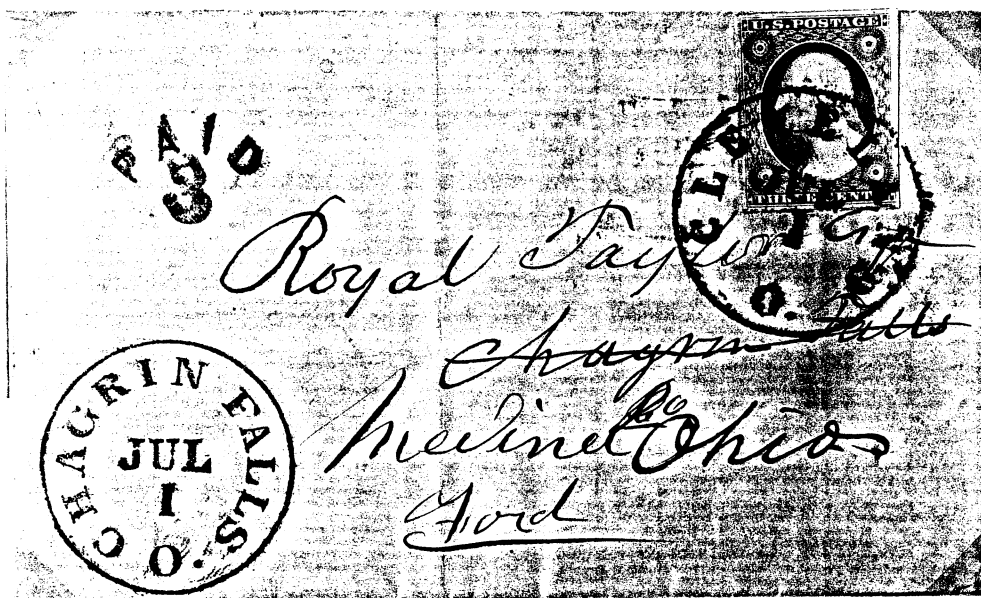 U.S. POSTAGE
THREE CENTS
PAID
3
CLEVELAND
O.
Royal Taylor Esq
Chagrin Falls
Medina Co Ohio
Ford
CHAGRIN FALLS. O
JUL
1